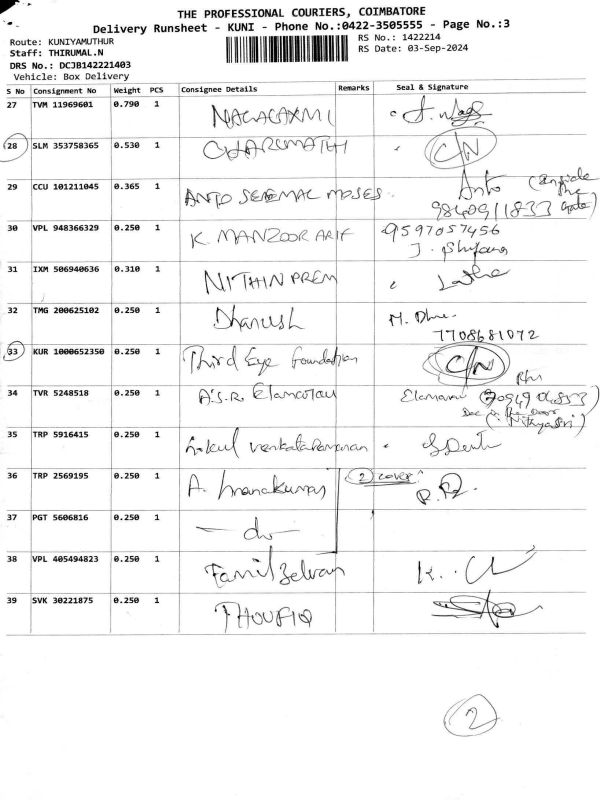 THE PROFESSIONAL COURIERS, COIMBATORE
Delivery Runsheet - KUNI - Phone No.:0422-3505555 - Page No.:3
Route: KUNIYAMUTHUR
RS No.: 1422214
Staff: THIRUMAL.N
RS Date: 03-Sep-2024
DRS No.: DCJB142221403
Vehicle: Box Delivery
S No Consignment No Weight PCS Consignee Details Remarks Seal & Signature
27 TVM 11969601 0.790 1 NAGALAXMI
28 SLM 353758365 0.530 1 CHARUMATHI C/N
29 CCU 101211045 0.365 1 ANTO MOSES Anto
9840911833
30 VPL 948366329 0.250 1 K. MANZOOR ARIF 9597057456
31 IXM 506940636 0.310 1 NITHIN PREM
32 TMG 200625102 0.250 1 Dhanush M. Dhu
7708681072
33 KUR 1000652350 0.250 1 Third Eye foundation C/N
34 TVR 5248518 0.250 1 A.S.R. Elancovan
35 TRP 5916415 0.250 1 venkataramanan
36 TRP 2569195 0.250 1 A. 2 cover
37 PGT 5606816 0.250 1 - do -
38 VPL 405494823 0.250 1 Tamil Selvan
39 SVK 30221875 0.250 1 THOUFIQ
2